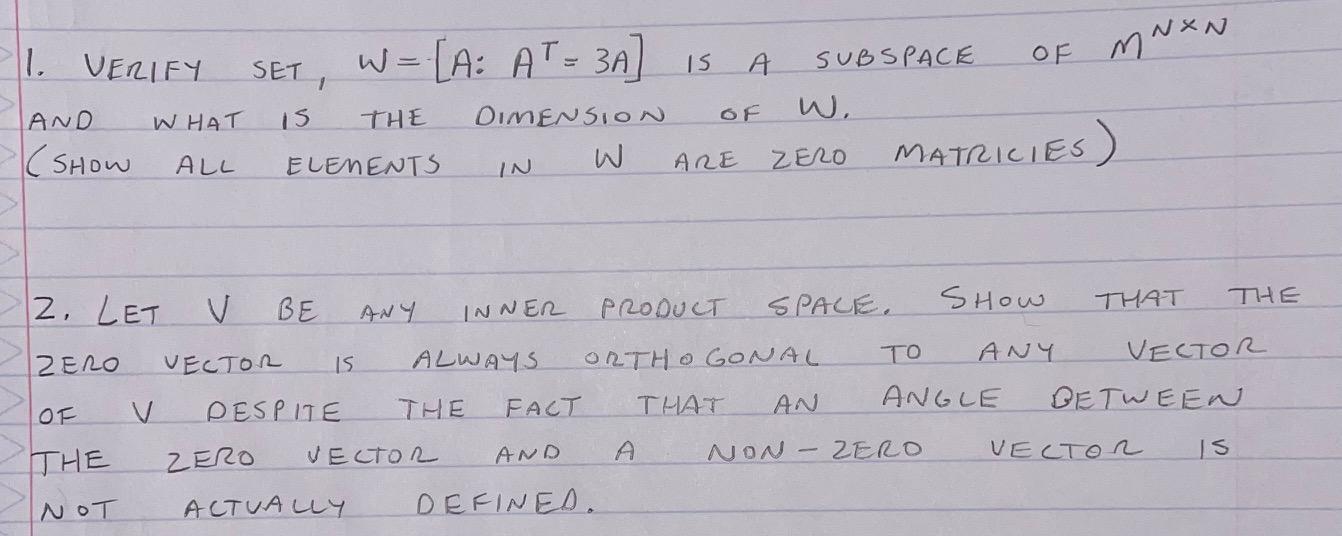 1. VERIFY SET, W = [A: Aᵀ = 3A] IS A SUBSPACE OF Mᴺˣᴺ
AND WHAT IS THE DIMENSION OF W.
(SHOW ALL ELEMENTS IN W ARE ZERO MATRICIES)
2. LET V BE ANY INNER PRODUCT SPACE. SHOW THAT THE
ZERO VECTOR IS ALWAYS ORTHOGONAL TO ANY VECTOR
OF V DESPITE THE FACT THAT AN ANGLE BETWEEN
THE ZERO VECTOR AND A NON-ZERO VECTOR IS
NOT ACTUALLY DEFINED.